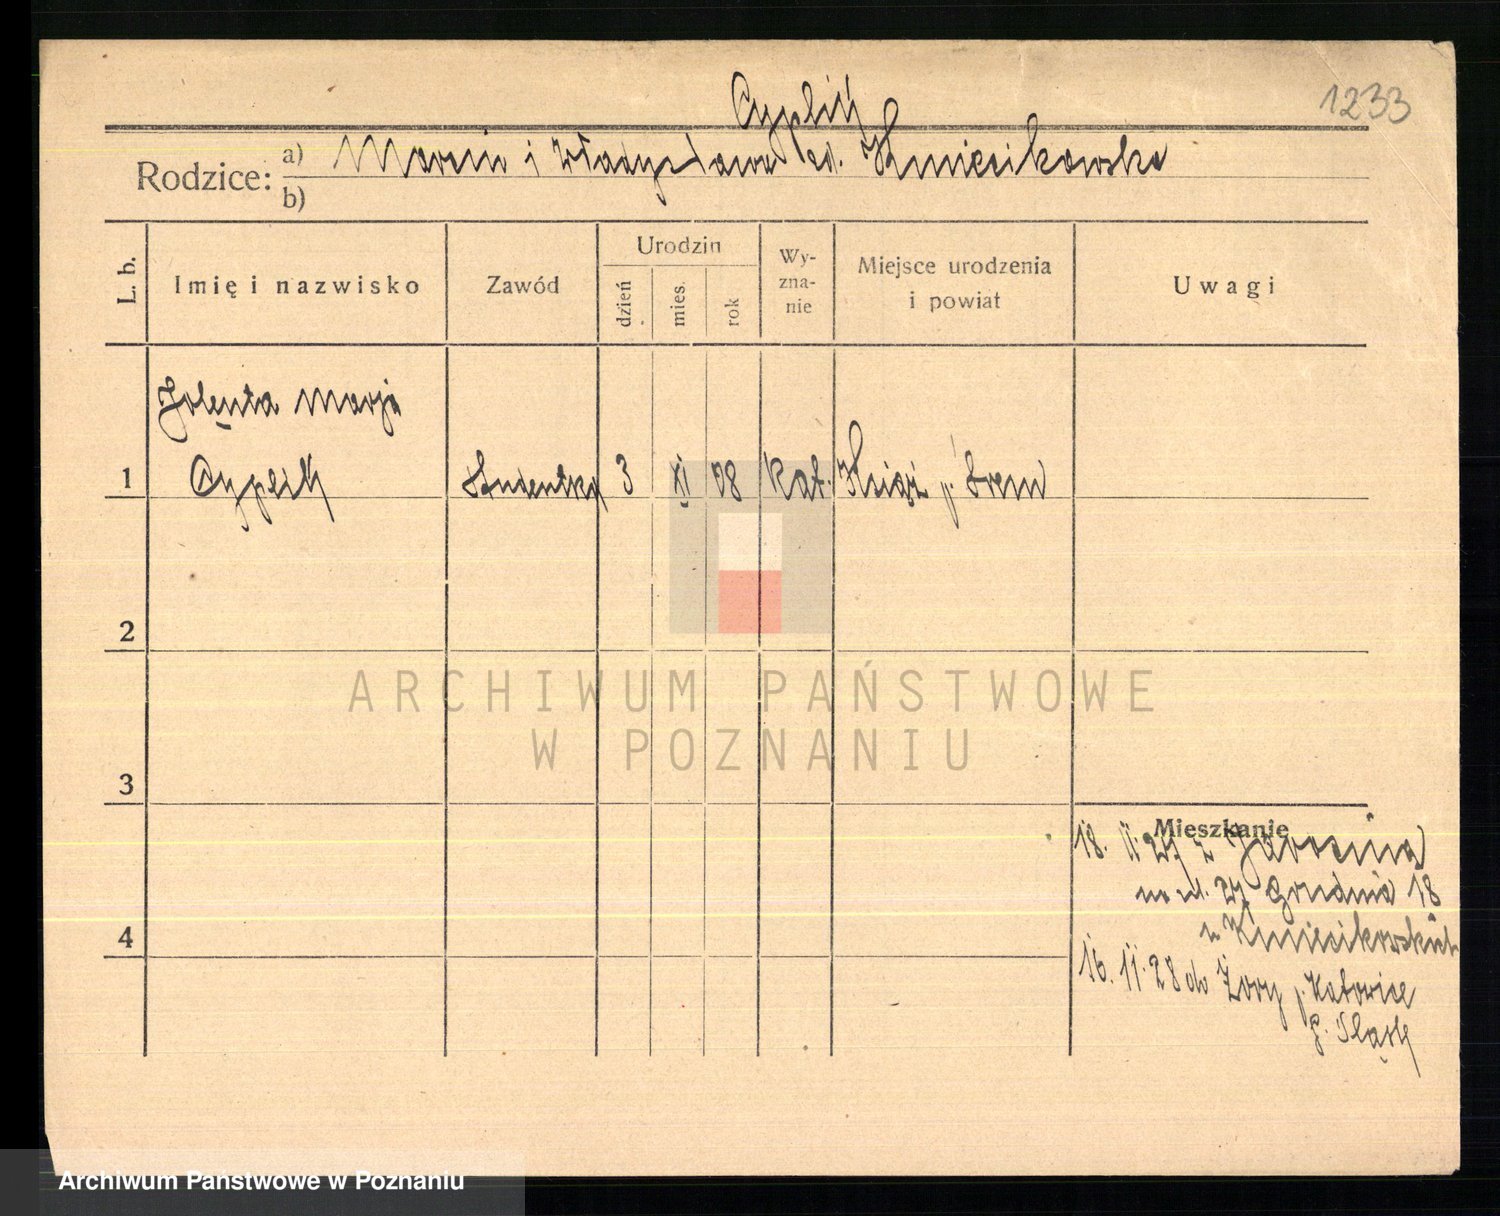 1233
Cyplik
Rodzice: a) Marcin i Władysława z d. Kmiecikowska
b)
L. b. Imię i nazwisko Zawód Urodzin dzień mies. rok Wy-zna-nie Miejsce urodzenia i powiat Uwagi
Jolenta Marja
1 Cyplik studentka 3 XI 08 kat. Książ p. Śrem
2
ARCHIWUM PAŃSTWOWE
W POZNANIU
3
Mieszkanie
18. II 27 z Jarocina
na ul. 27 Grudnia 18
u Kmiecikowskich
4
16. 11. 28 do Żory p. Katowice
G. Śląsk
Archiwum Państwowe w Poznaniu